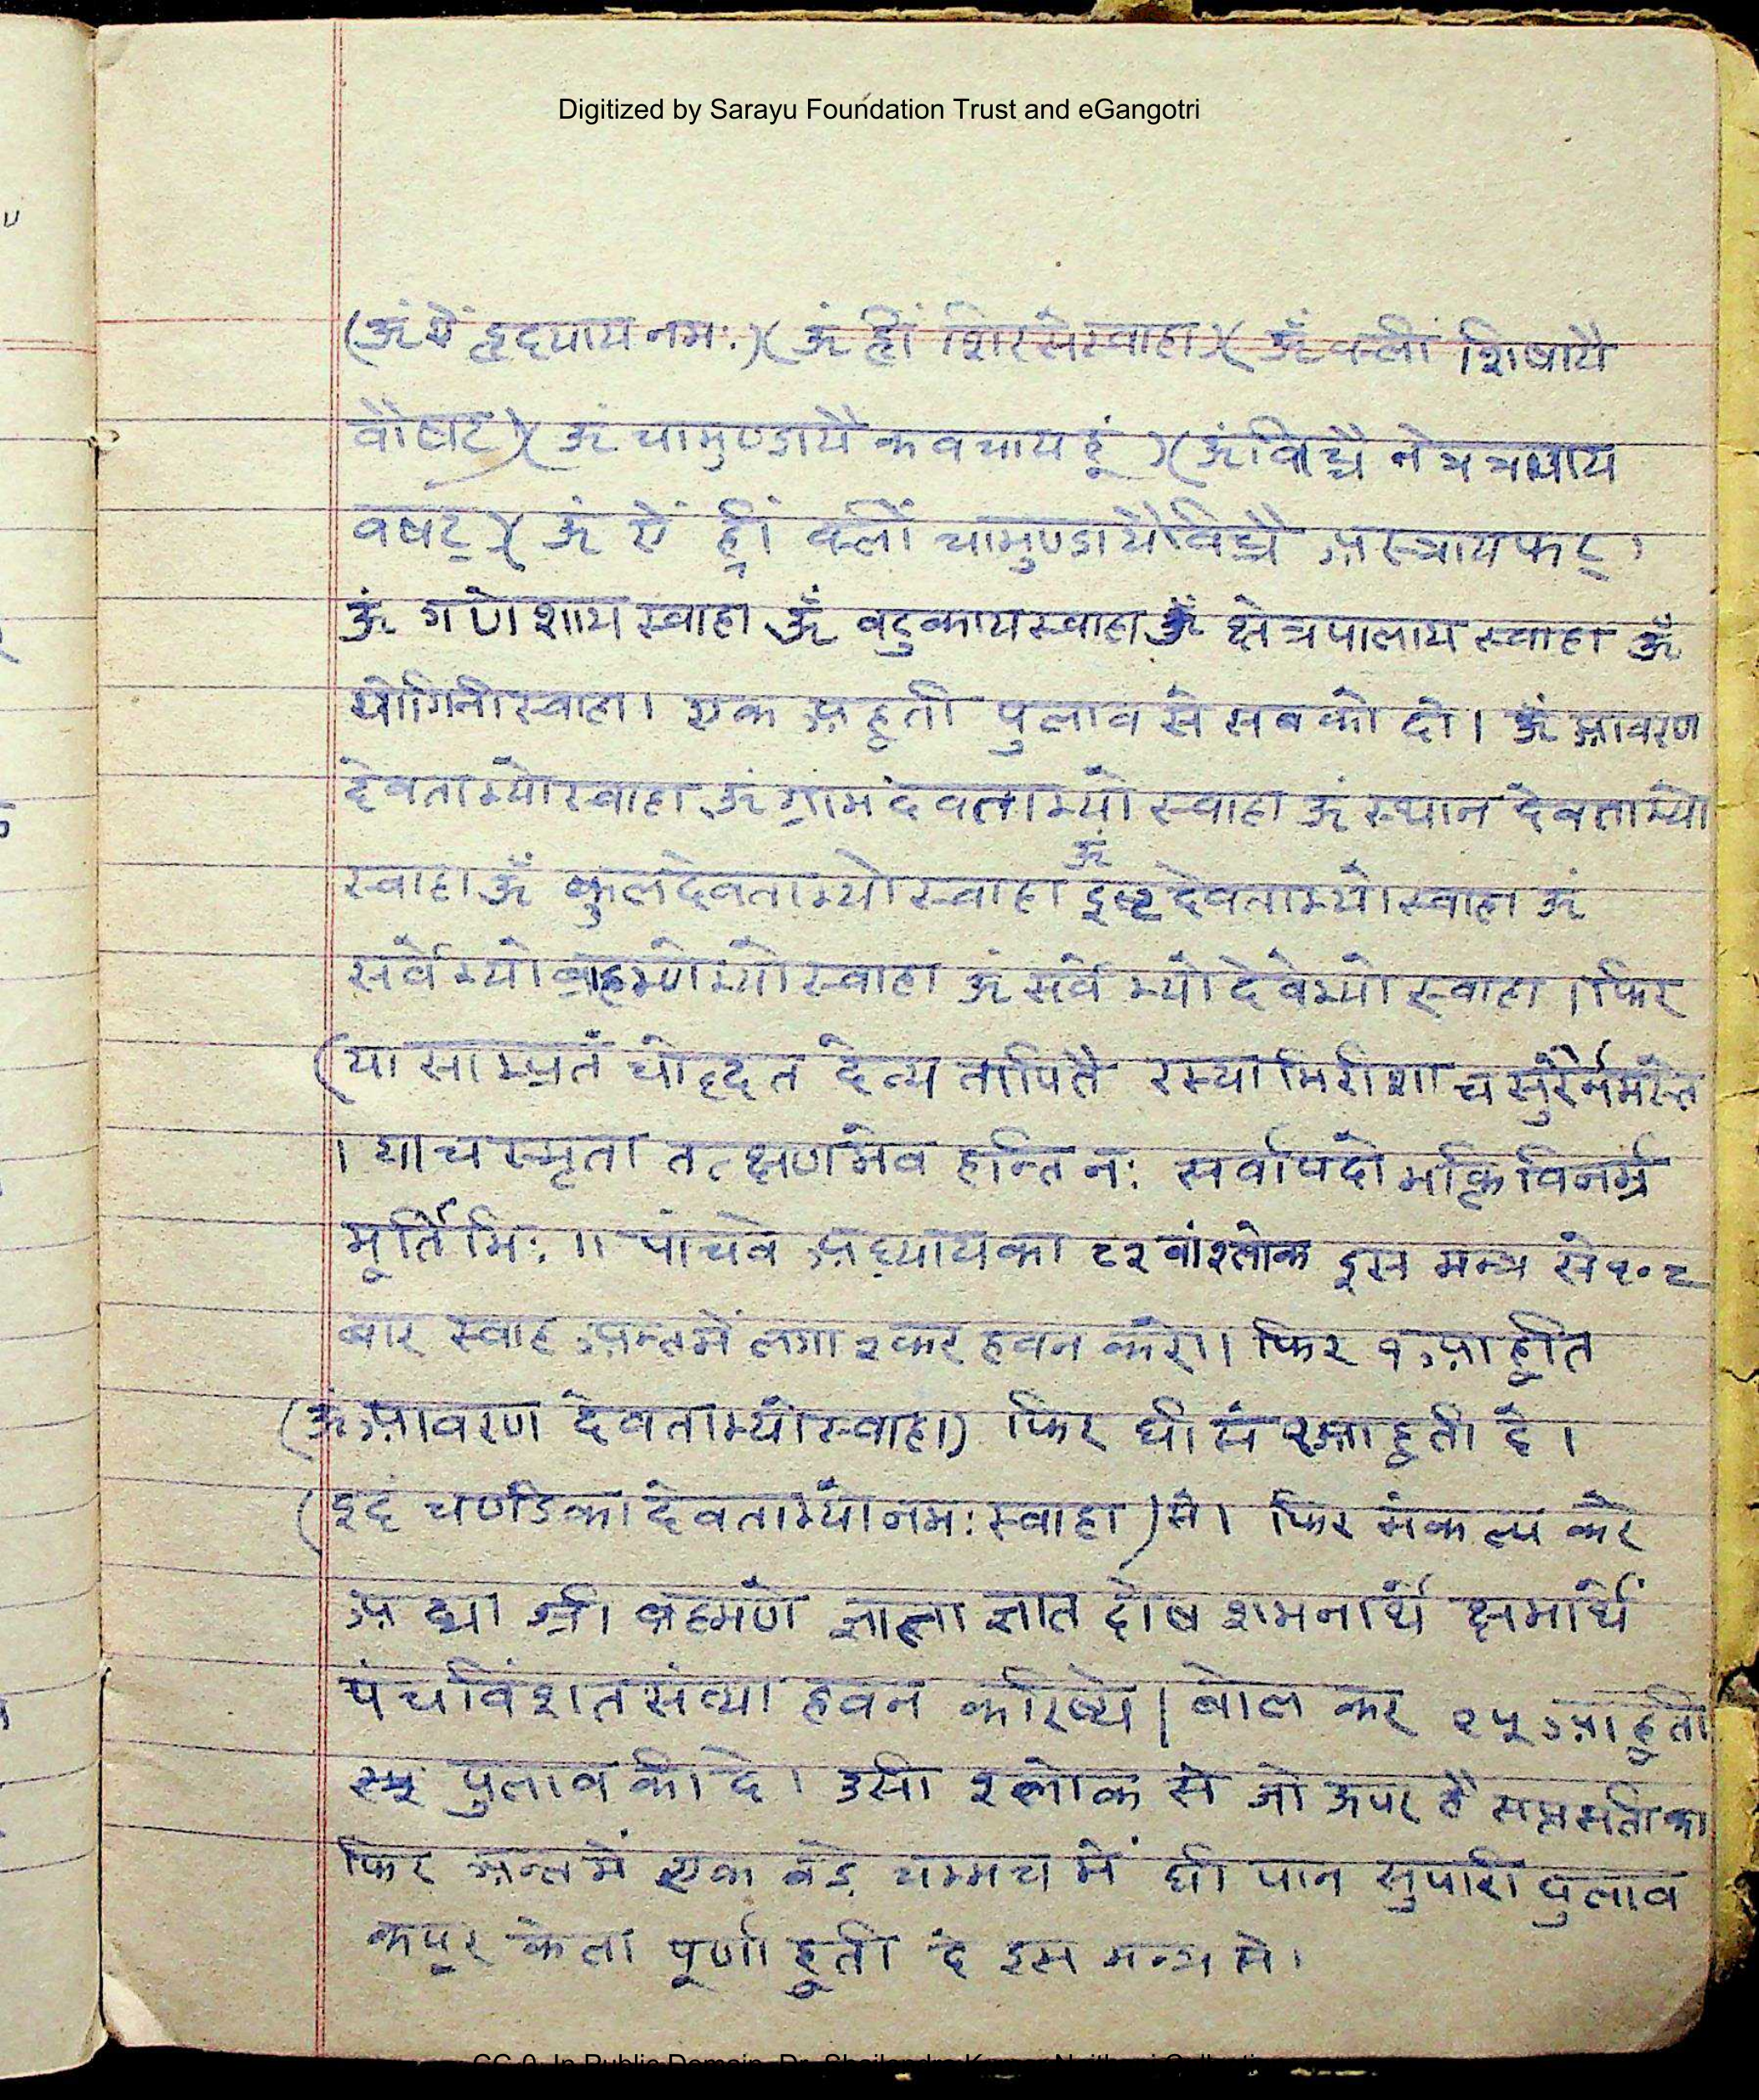 Digitized by Sarayu Foundation Trust and eGangotri
(ॐ ऐं हृदयाय नमः)(ॐ ह्रीं शिरसे स्वाहा)(ॐ क्लीं शिषायै
वौषट)(ॐ चामुण्डायै कवचाय हूं)(ॐ विच्चै नेत्रत्रयाय
वषट्)(ॐ ऐं ह्रीं क्लीं चामुण्डायै विच्चै अस्त्राय फट्।
ॐ गणेशाय स्वाहा ॐ वटुकाय स्वाहा ॐ क्षेत्रपालाय स्वाहा ॐ
योगिनी स्वाहा। एक अहूती पुलाव से सबको दो। ॐ आवरण
देवताभ्यो स्वाहा ॐ ग्राम देवताभ्यो स्वाहा ॐ स्थान देवताभ्यो
स्वाहा ॐ कुलदेवताभ्यो स्वाहा ॐ इष्टदेवताभ्यो स्वाहा ॐ
सर्वेभ्यो ब्राहमणेभ्यो स्वाहा ॐ सर्वेभ्यो देवेभ्यो स्वाहा। फिर
(या साम्प्रतं चोद्दत देत्य तापितै रस्माभिरीशा च सुरैर्नमस्ते
। या च स्मृता तत्क्षणमेव हन्ति नः सर्वापदो भक्ति विनम्र
मूर्तिभिः।। पांचवे अध्याय का ८२ वां श्लोक इस मन्त्र से १०८
बार स्वाह अन्त में लगा २ कर हवन करें।। फिर १ आहूति
(ॐ आवरण देवताभ्यो स्वाहा) फिर घी से आहूती दे।
(इदं चण्डिका देवताभ्यो नमः स्वाहा) से। फिर संकल्प करे
अद्या श्री ब्रहमणे ज्ञाताज्ञात दोष शमनार्थे क्षमार्थे
पंचविंशत संख्या हवन करिष्ये। बोल कर २५ आहूती
पुलाव की दे। उसी श्लोक से जो ऊपर है सप्तसती का
फिर अन्त में एक बड़े चम्मच में घी पान सुपारी पुलाव
कपूर केला पूर्णाहूती दे इस मन्त्र से।